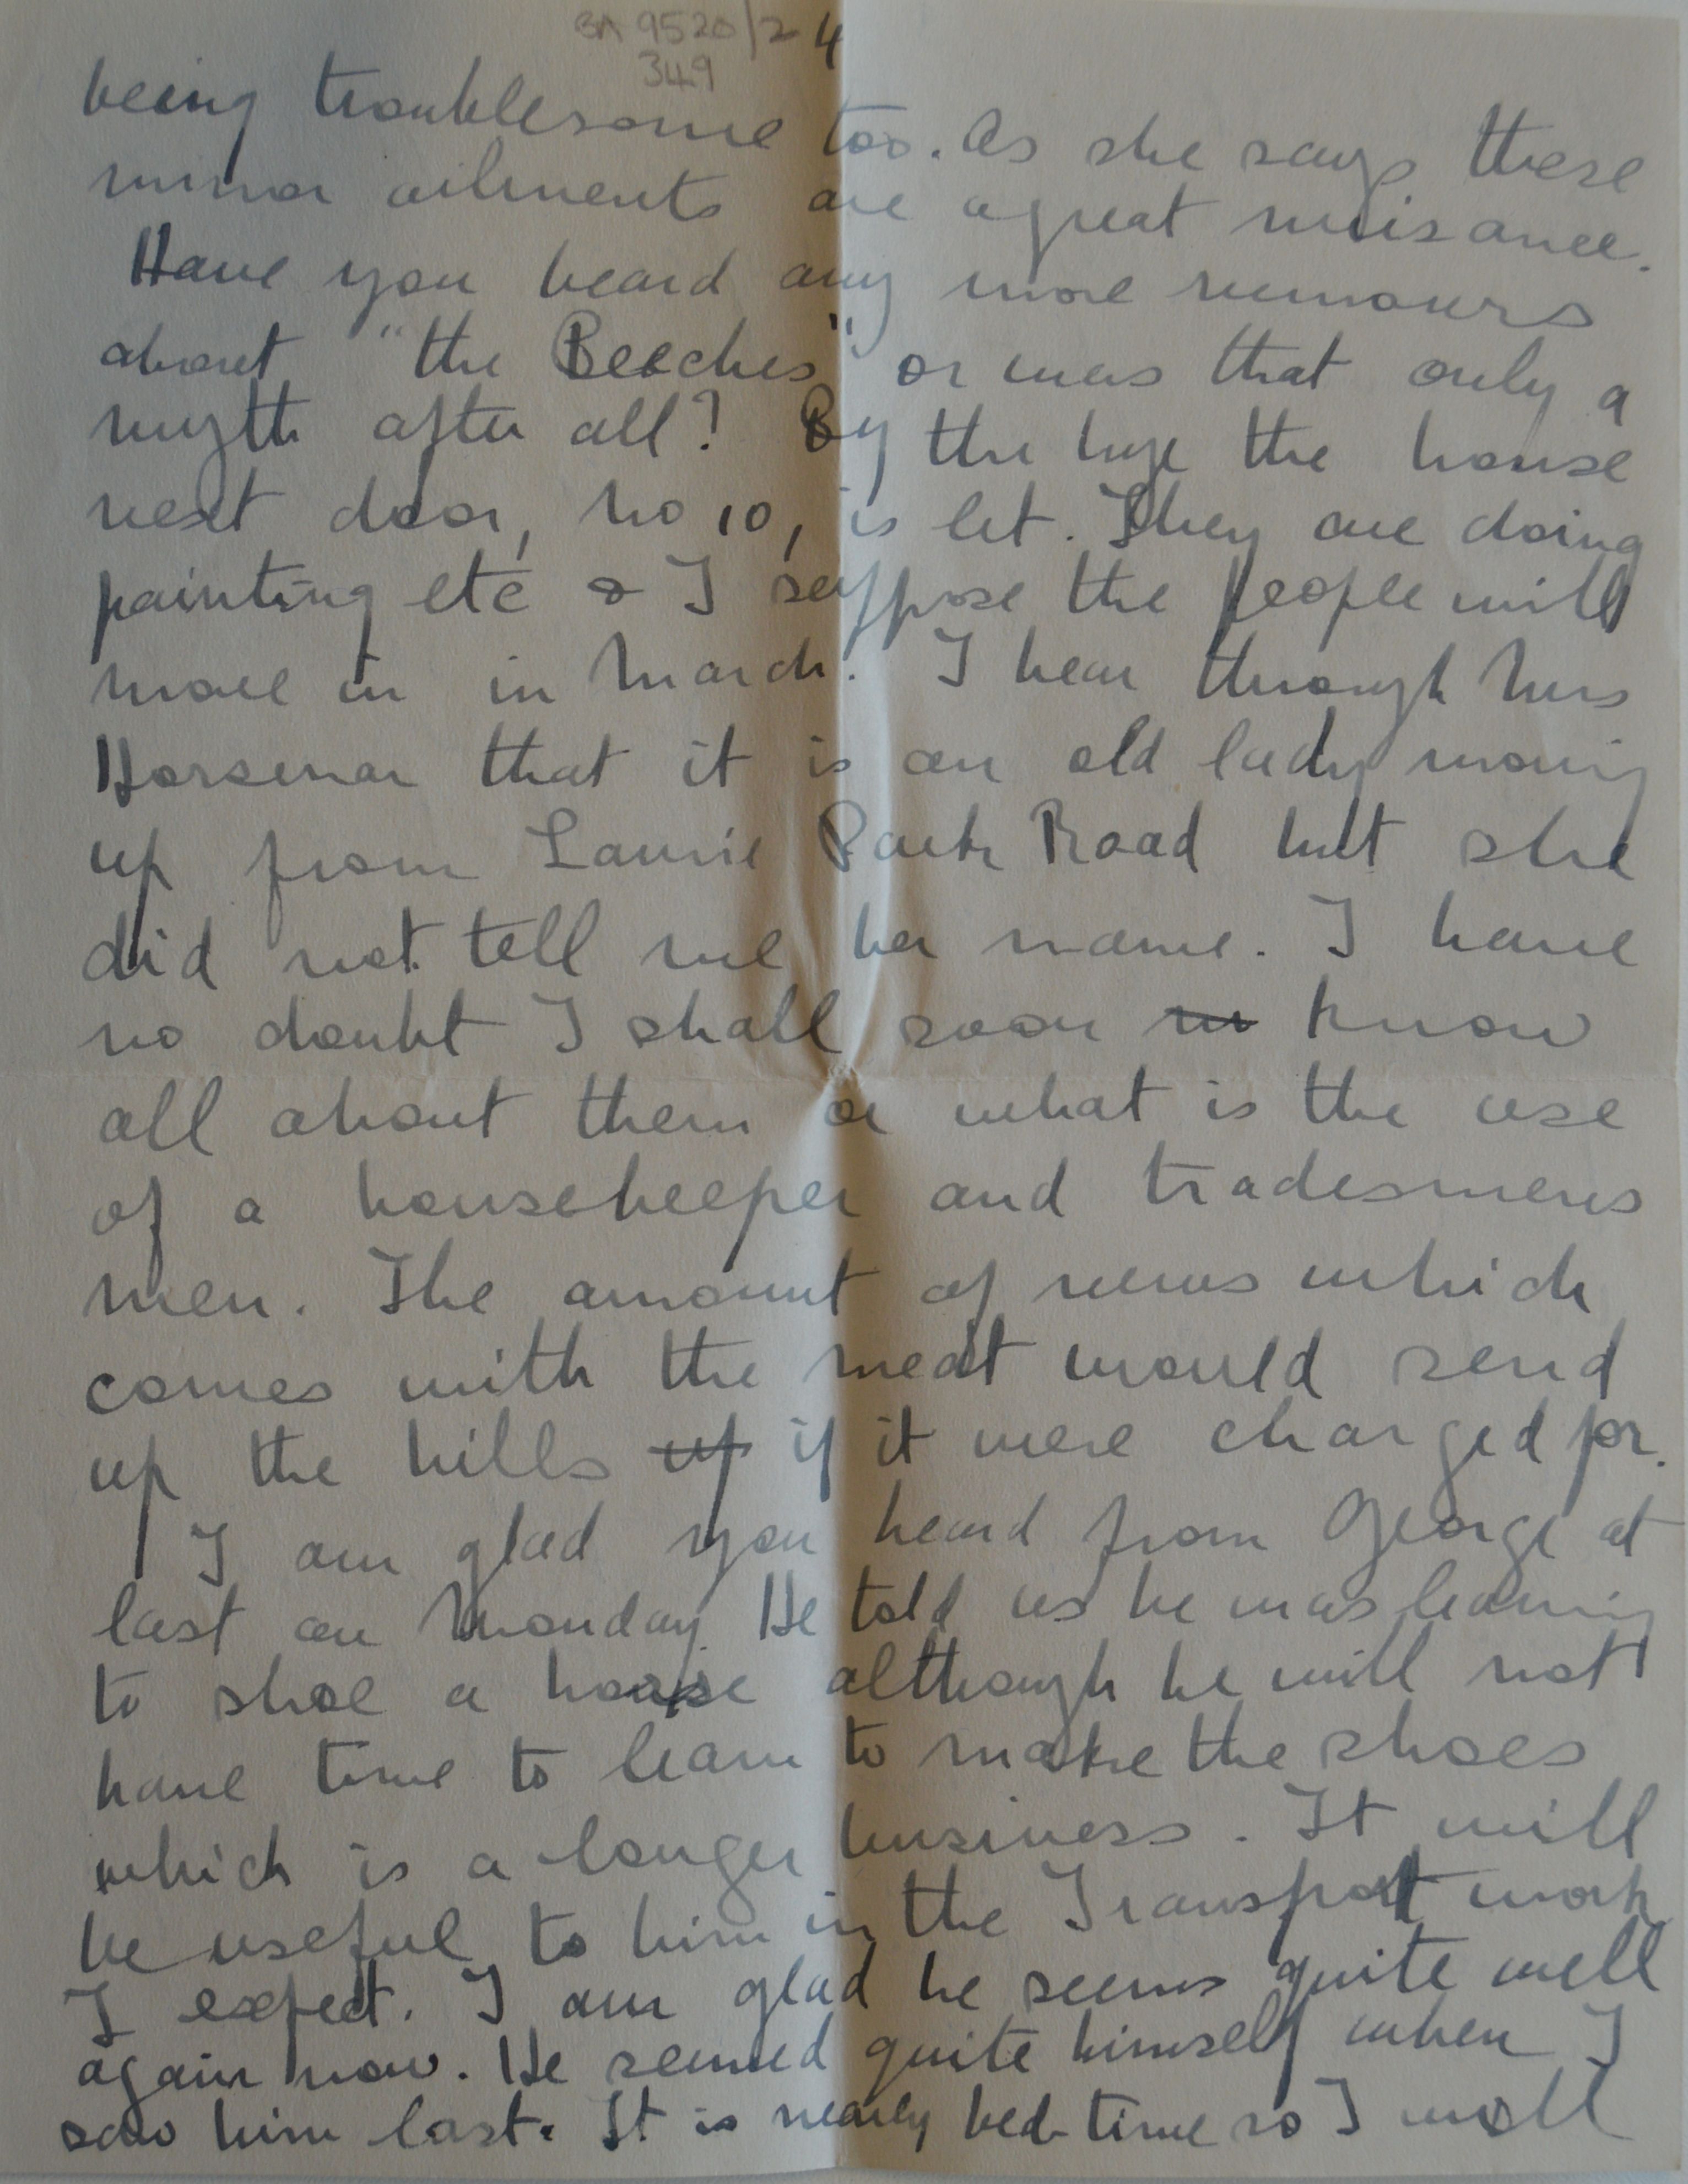 BA 9520/24
349
being troublesome too. As she says these
minor ailments are a great nuisance.
Have you heard any more rumours
about "the Beeches" or was that only a
myth after all? By the bye the house
next door, no 10, is let. They are doing
painting etc & I suppose the people will
move in in March. I hear through Mrs
that it is an old lady moving
up from Laurie Park Road but she
did not tell me her name. I have
no doubt I shall soon know
all about them or what is the use
of a housekeeper and tradesmens
men. The amount of news which
comes with the meat would send
up the bills up if it were charged for.
I am glad you heard from George at
last on Monday. He told us he was learning
to shoe a horse although he will not
have time to learn to make the shoes
which is a longer business. It will
be useful to him in the Transport work
I expect. I am glad he seems quite well
again now. He seemed quite himself when I
saw him last. It is nearly bed-time so I will